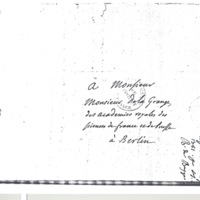 A Monsieur
Monsieur de la Grange,
des academies royales des
sciences de france et de Prusse
à Berlin